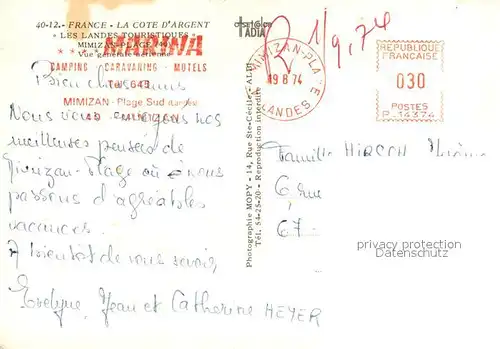 40-12. - FRANCE - LA COTE D'ARGENT
« LES LANDES TOURISTIQUES »
MIMIZAN-PLAGE
Vue générale aérienne
MARINA
CAMPING - CARAVANING - MOTELS
Tél. 643
MIMIZAN - Plage Sud
40
Bien chers
Nous vous envoyons nos
meilleures pensées de
Mimizan-Plage où nous
passons d'agréables
vacances.
A bientôt de vous savoir,
Evelyne, Jean et Catherine HEYER
Photographie MOPY - 14, Rue Ste-Cécile - ALBI
Tél. 54-25-20 - Reproduction interdite
ADIA
R 1/9.74
MIMIZAN-PLAGE
19 8 74
LANDES
REPUBLIQUE
FRANÇAISE
030
POSTES
P_14374
Famille HIRSCH
6, rue
67
privacy protection
Datenschutz